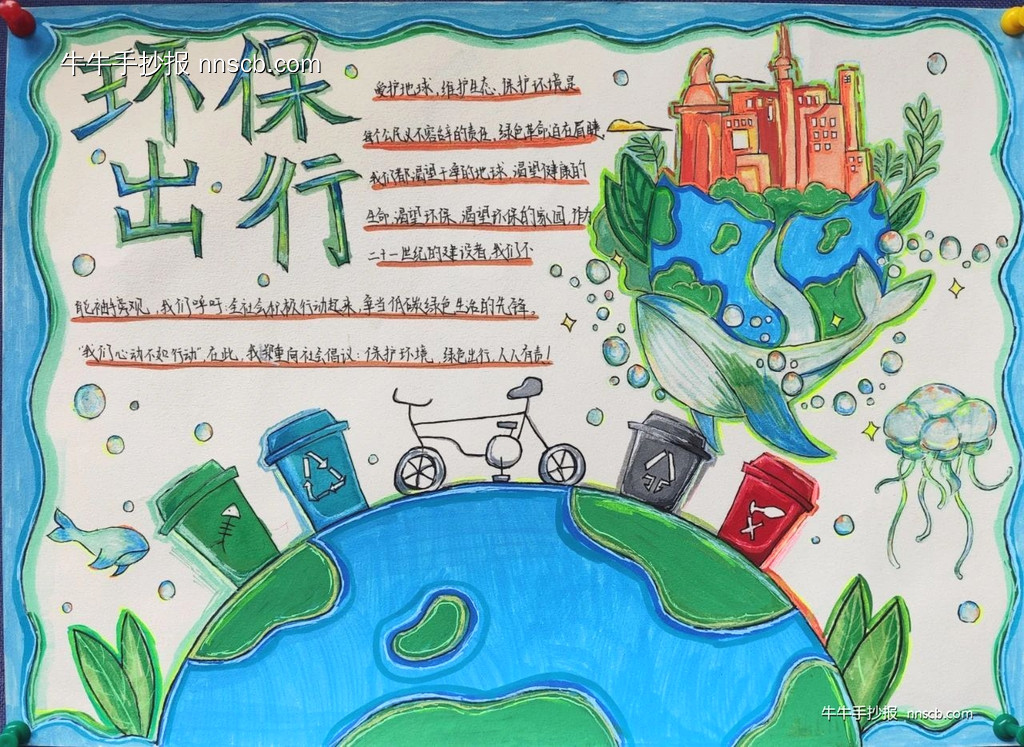 牛牛手抄报 nnscb.com
环保
出行
爱护地球,维护生态,保护环境是
每个公民义不容辞的责任,绿色革命迫在眉睫,
我们都渴望干净的地球,渴望健康的
生命,渴望环保,渴望环保的家园,作为
二十一世纪的建设者,我们不
能袖手旁观,我们呼吁:全社会积极行动起来,争当低碳绿色生活的先锋,
"我们心动不如行动",在此,我郑重向社会倡议:保护环境,绿色出行,人人有责!
牛牛手抄报 nnscb.com